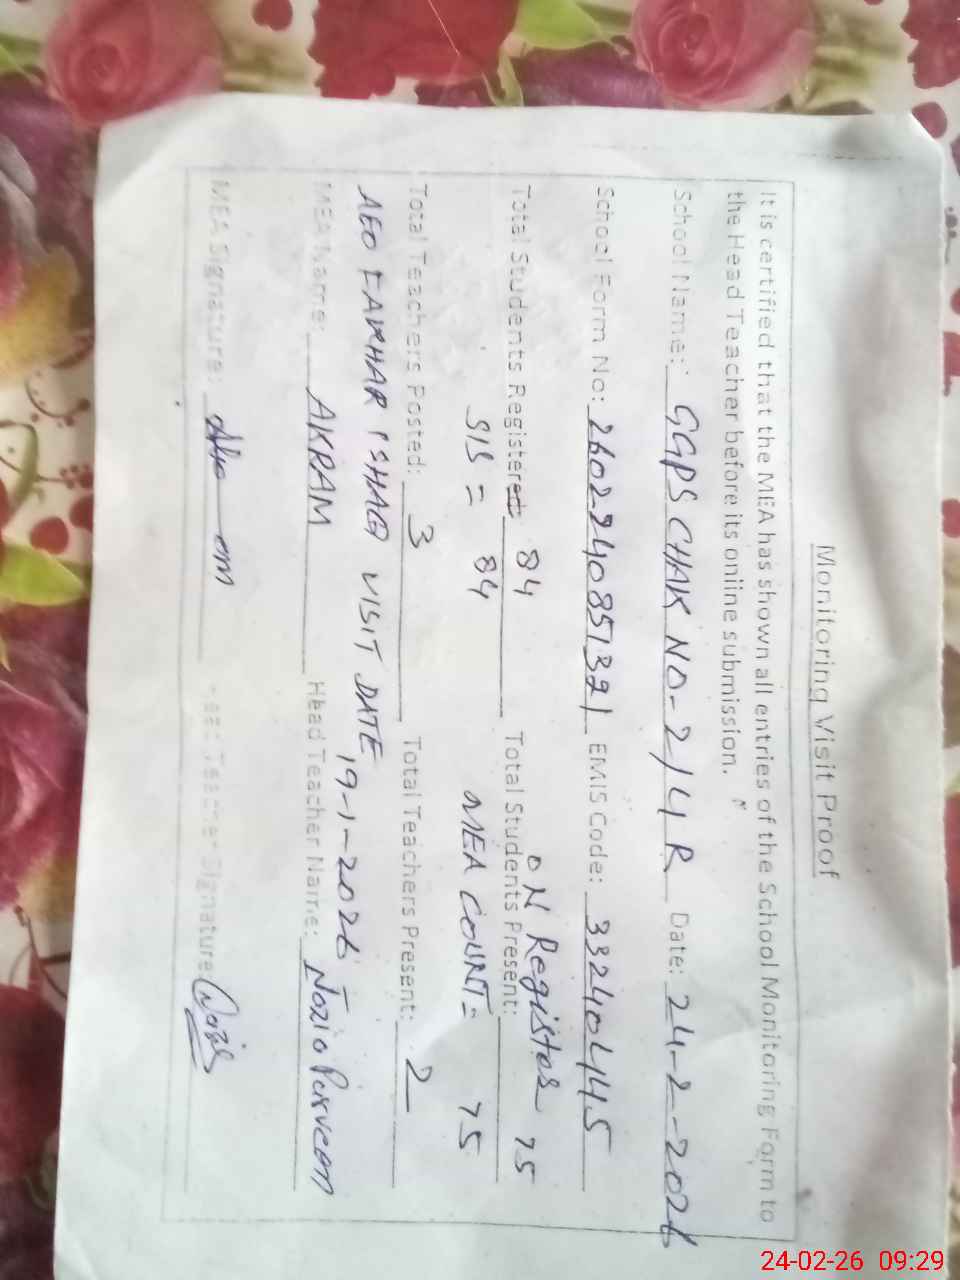 Monitoring Visit Proof
It is certified that the MEA has shown all entries of the School Monitoring Form to
the Head Teacher before its online submission.
School Name: GGPS CHAK NO-2/4R Date: 24-2-2026
School Form No: 2602240851321 EMIS Code: 33240445
ON Register 75
Total Students Registered: 84 Total Students Present:
SIS = 84 MEA COUNT = 75
Total Teachers Posted: 3 Total Teachers Present: 2
AEO FAKHAR ISHAQ VISIT DATE 19-1-2026
MEA Name: AKRAM Head Teacher Name: Nazia Parveen
MEA Signature: Head Teacher Signature:
24-02-26 09:29